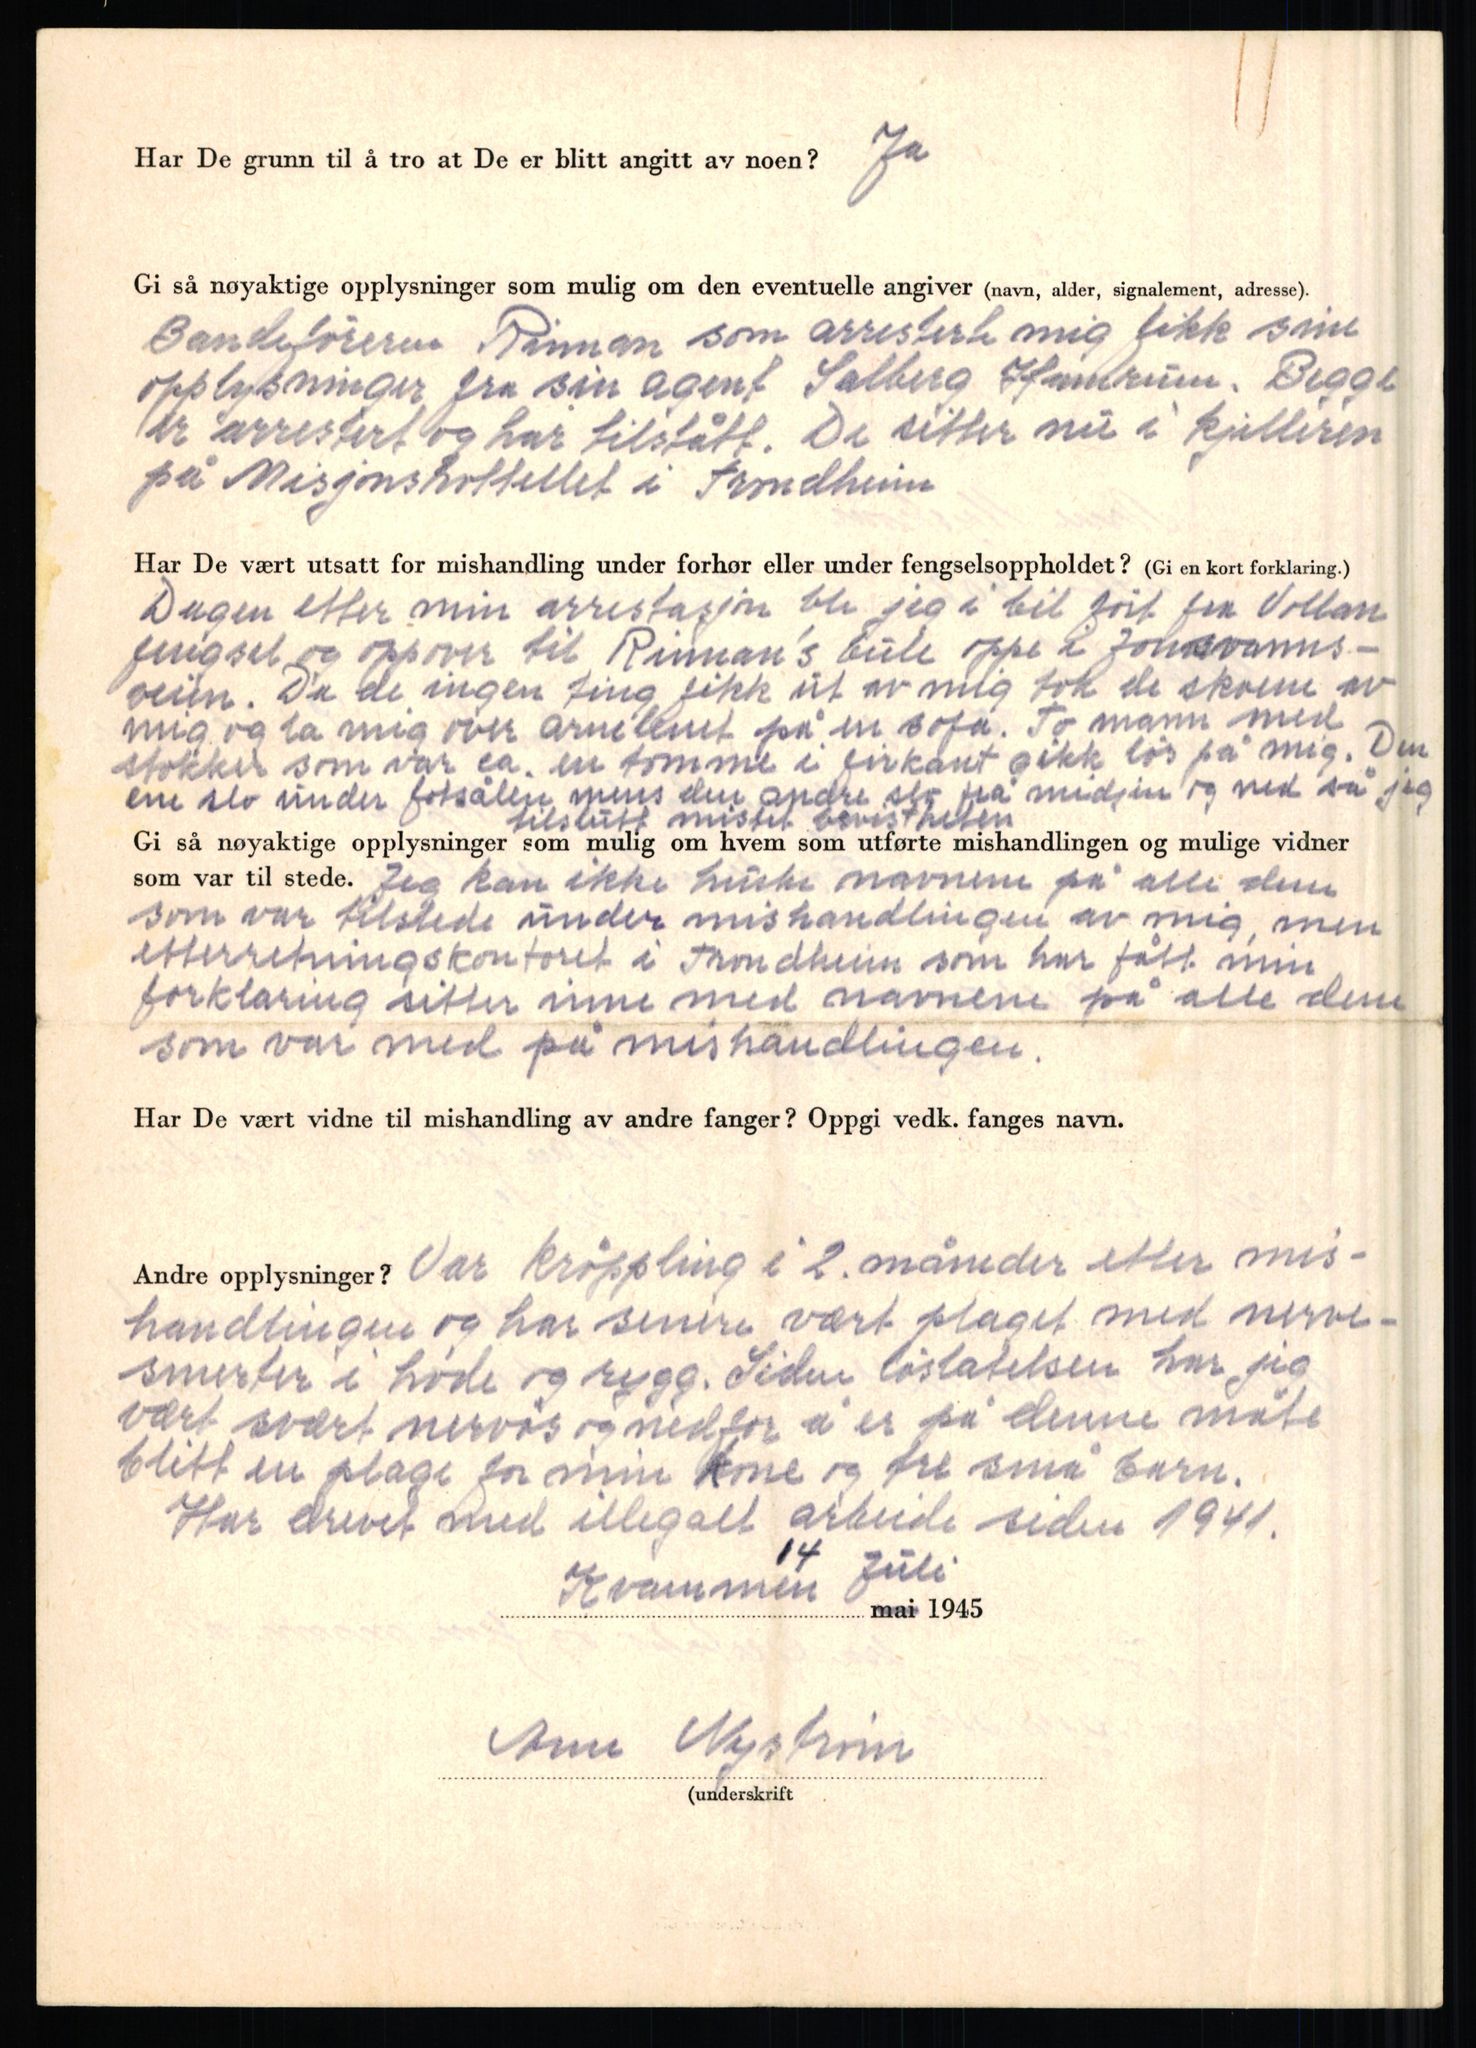 Har De grunn til å tro at De er blitt angitt av noen? Ja
Gi så nøyaktige opplysninger som mulig om den eventuelle angiver (navn, alder, signalement, adresse).
Bandeföreren Rinnan som arresterte mig fikk sine
opplysninger fra sin agent Salberg Hamrum. Begge
er arrestert og har tilstått. De sitter nu i kjelleren
på Misjonshottellet i Trondheim
Har De vært utsatt for mishandling under forhør eller under fengselsoppholdet? (Gi en kort forklaring.)
Dagen etter min arrestasjon ble jeg i bil föit fra Vollan
fengsel og oppover til Rinnan's bule oppe i Jonsvanns-
veien. Da de ingen ting fikk ut av mig tok de skoene av
mig og la mig over armlenet på en sofa. To mann med
stokker som var ca. en tomme i firkant gikk lös på mig. Den
ene slo under fotsålen mens den andre slo fra midjen og ned så jeg
tilslutt mistet bevistheten
Gi så nøyaktige opplysninger som mulig om hvem som utførte mishandlingen og mulige vidner
som var til stede. Jeg kan ikke huske navnene på alle dem
som var tilstede under mishandlingen av mig, men
etterretningskontoret i Trondheim som har fått min
forklaring sitter inne med navnene på alle dem
som var med på mishandlingen.
Har De vært vidne til mishandling av andre fanger? Oppgi vedk. fanges navn.
Andre opplysninger? Var kröppling i 2. måneder etter mis-
handlingen og har senere vært plaget med nerve-
smerter i hode og rygg. Siden löslatelsen har jeg
vært svært nervös og nedfor å er på denne måte
blitt en plage for min kone og tre små barn.
Har drevet med illegalt arbeide siden 1941.
Kvammen 14 Juli
mai 1945
Arne Nyström
(underskrift